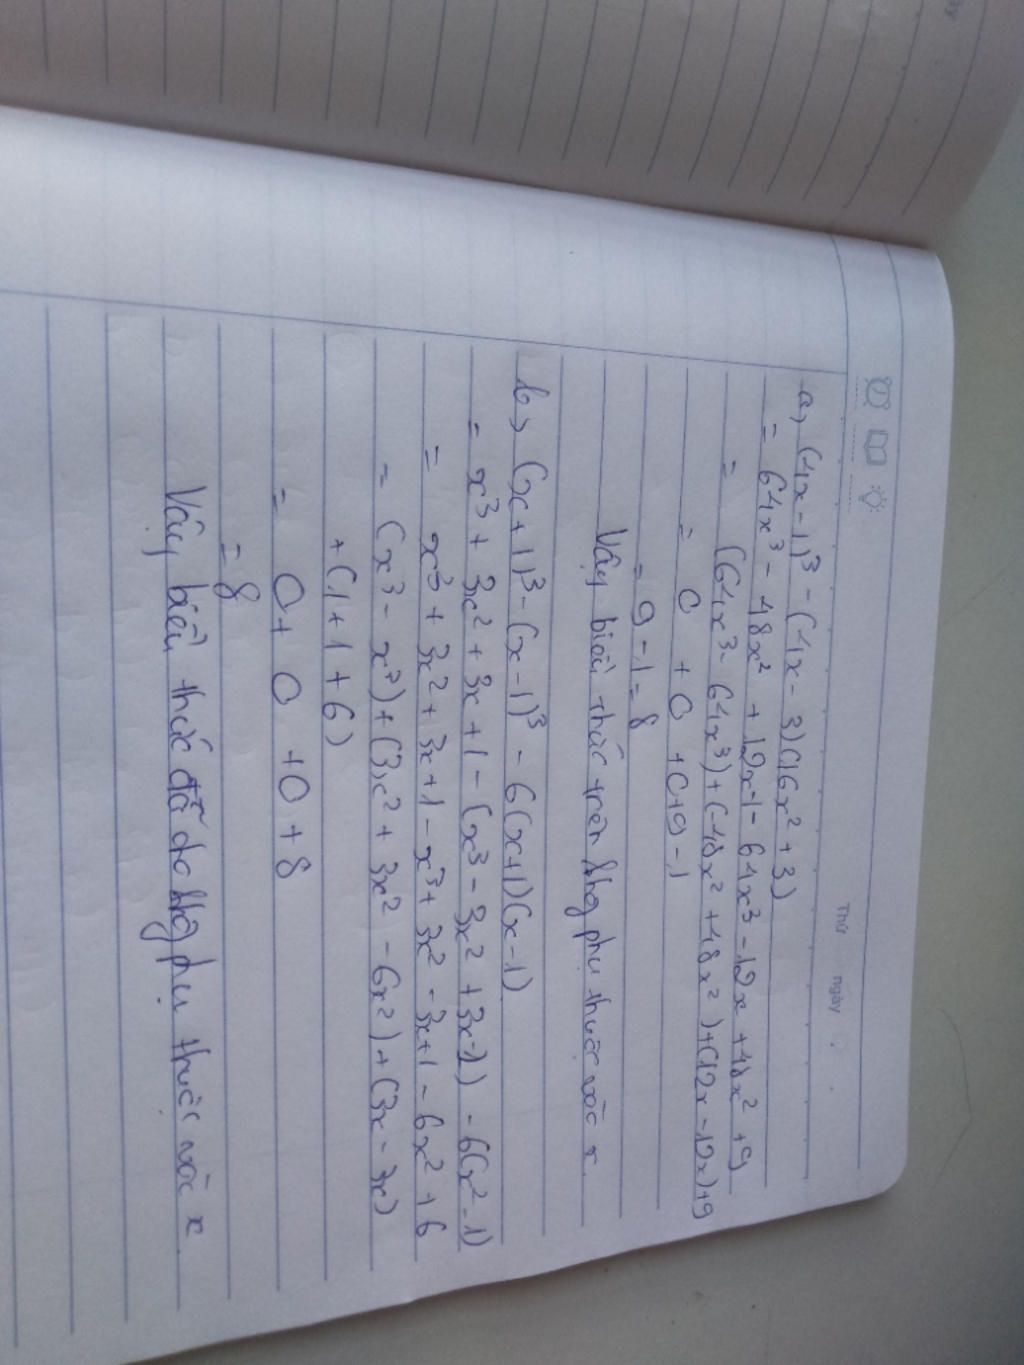 Thứ ngày
a, (4x-1)³-(4x-3)(16x²+3)
= 64x³-48x²+12x-1-64x³-12x+48x²+9
= (64x³-64x³)+(-48x²+48x²)+(12x-12x)+9
= 0 +0 +0+9-1
= 9-1=8
Vậy biểu thức trên không phụ thuộc vào x
b, (x+1)³-(x-1)³-6(x+1)(x-1)
= x³+3x²+3x+1-(x³-3x²+3x-1)-6(x²-1)
= x³+3x²+3x+1-x³+3x²-3x+1-6x²+6
= (x³-x³)+(3x²+3x²-6x²)+(3x-3x)
+(1+1+6)
= 0+0+0+8
= 8
Vậy biểu thức phụ thuộc vào x